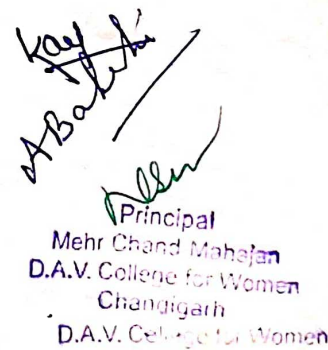 Kay
Principal
Mehr Chand Mahajan
D.A.V. College for Women
Chandigarh
D.A.V. College for Women